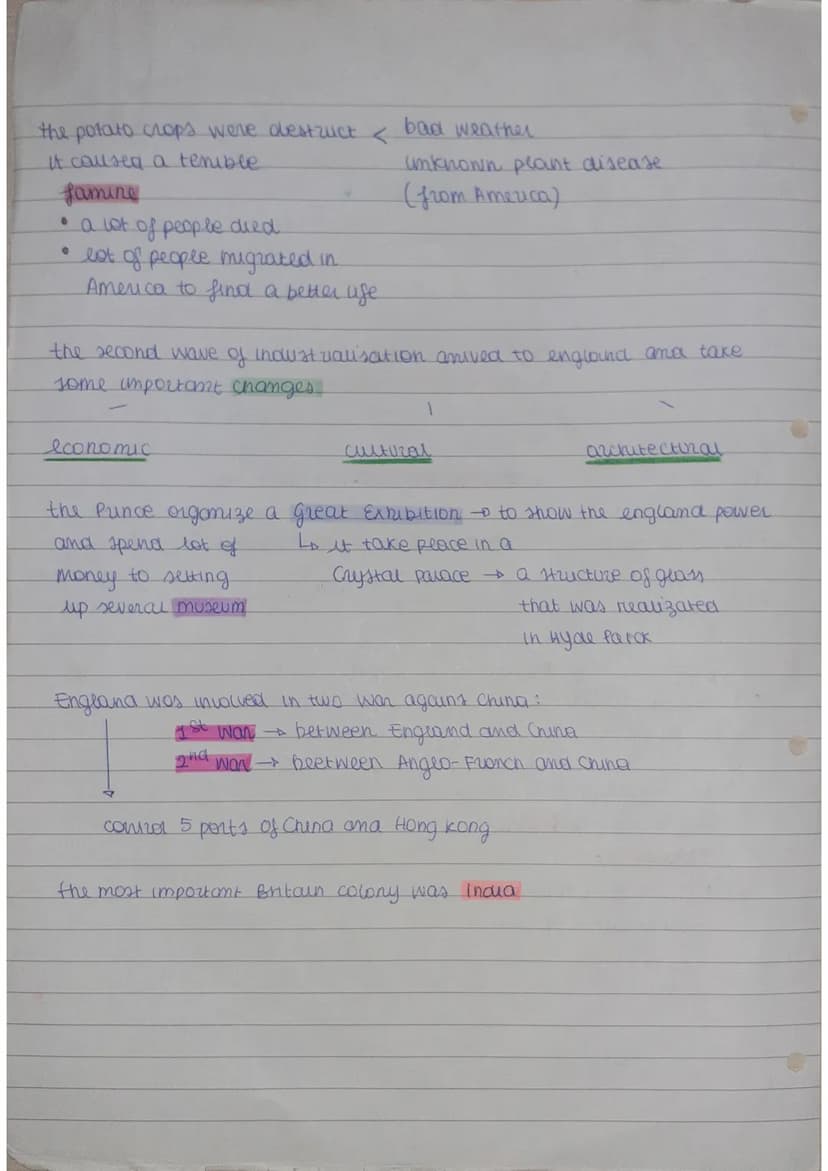 the potato crops were destruct < bad weather
it caused a terrible unknown plant disease
famine (from America)
• a lot of people died
• lot of people migrated in
America to find a better life
the second wave of industrialisation arrived to england and take
some important changes
economic cultural architectural
the Prince organize a Great Exhibition → to show the england power
and spend lot of ↳ it take peace in a
money to setting Crystal palace → a structure of glass
up several museum that was realizated
in Hyde Parck
England was involved in two war agains China:
1st war → between England and China
2nd war → beetween Anglo-French and China
control 5 ports of China and Hong kong
the most important Britain colony was India